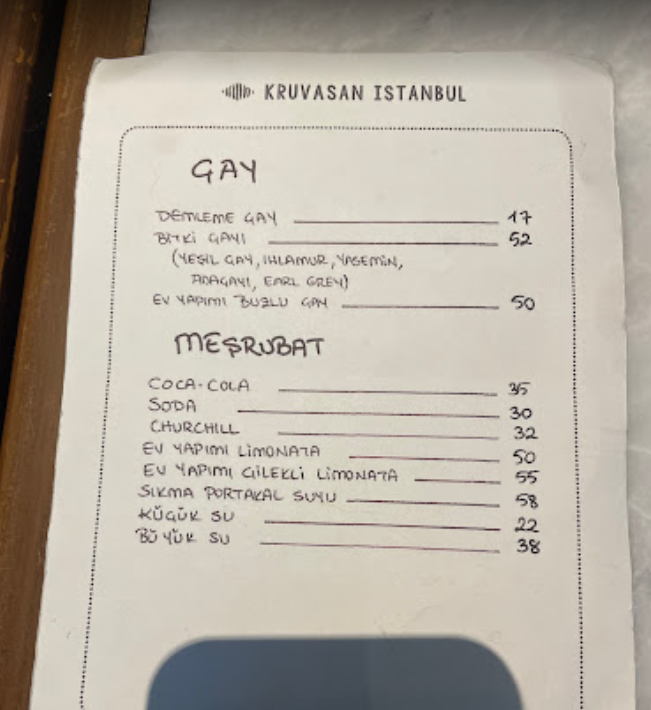 KRUVASAN ISTANBUL
ÇAY
DEMLEME ÇAY 17
BİTKİ ÇAYI 52
(YEŞİL ÇAY, IHLAMUR, YASEMİN,
ADAÇAYI, EARL GREY)
EV YAPIMI BUZLU ÇAY 50
MEŞRUBAT
COCA-COLA 35
SODA 30
CHURCHILL 32
EV YAPIMI LİMONATA 50
EV YAPIMI ÇİLEKLİ LİMONATA 55
SIKMA PORTAKAL SUYU 58
KÜÇÜK SU 22
BÜYÜK SU 38